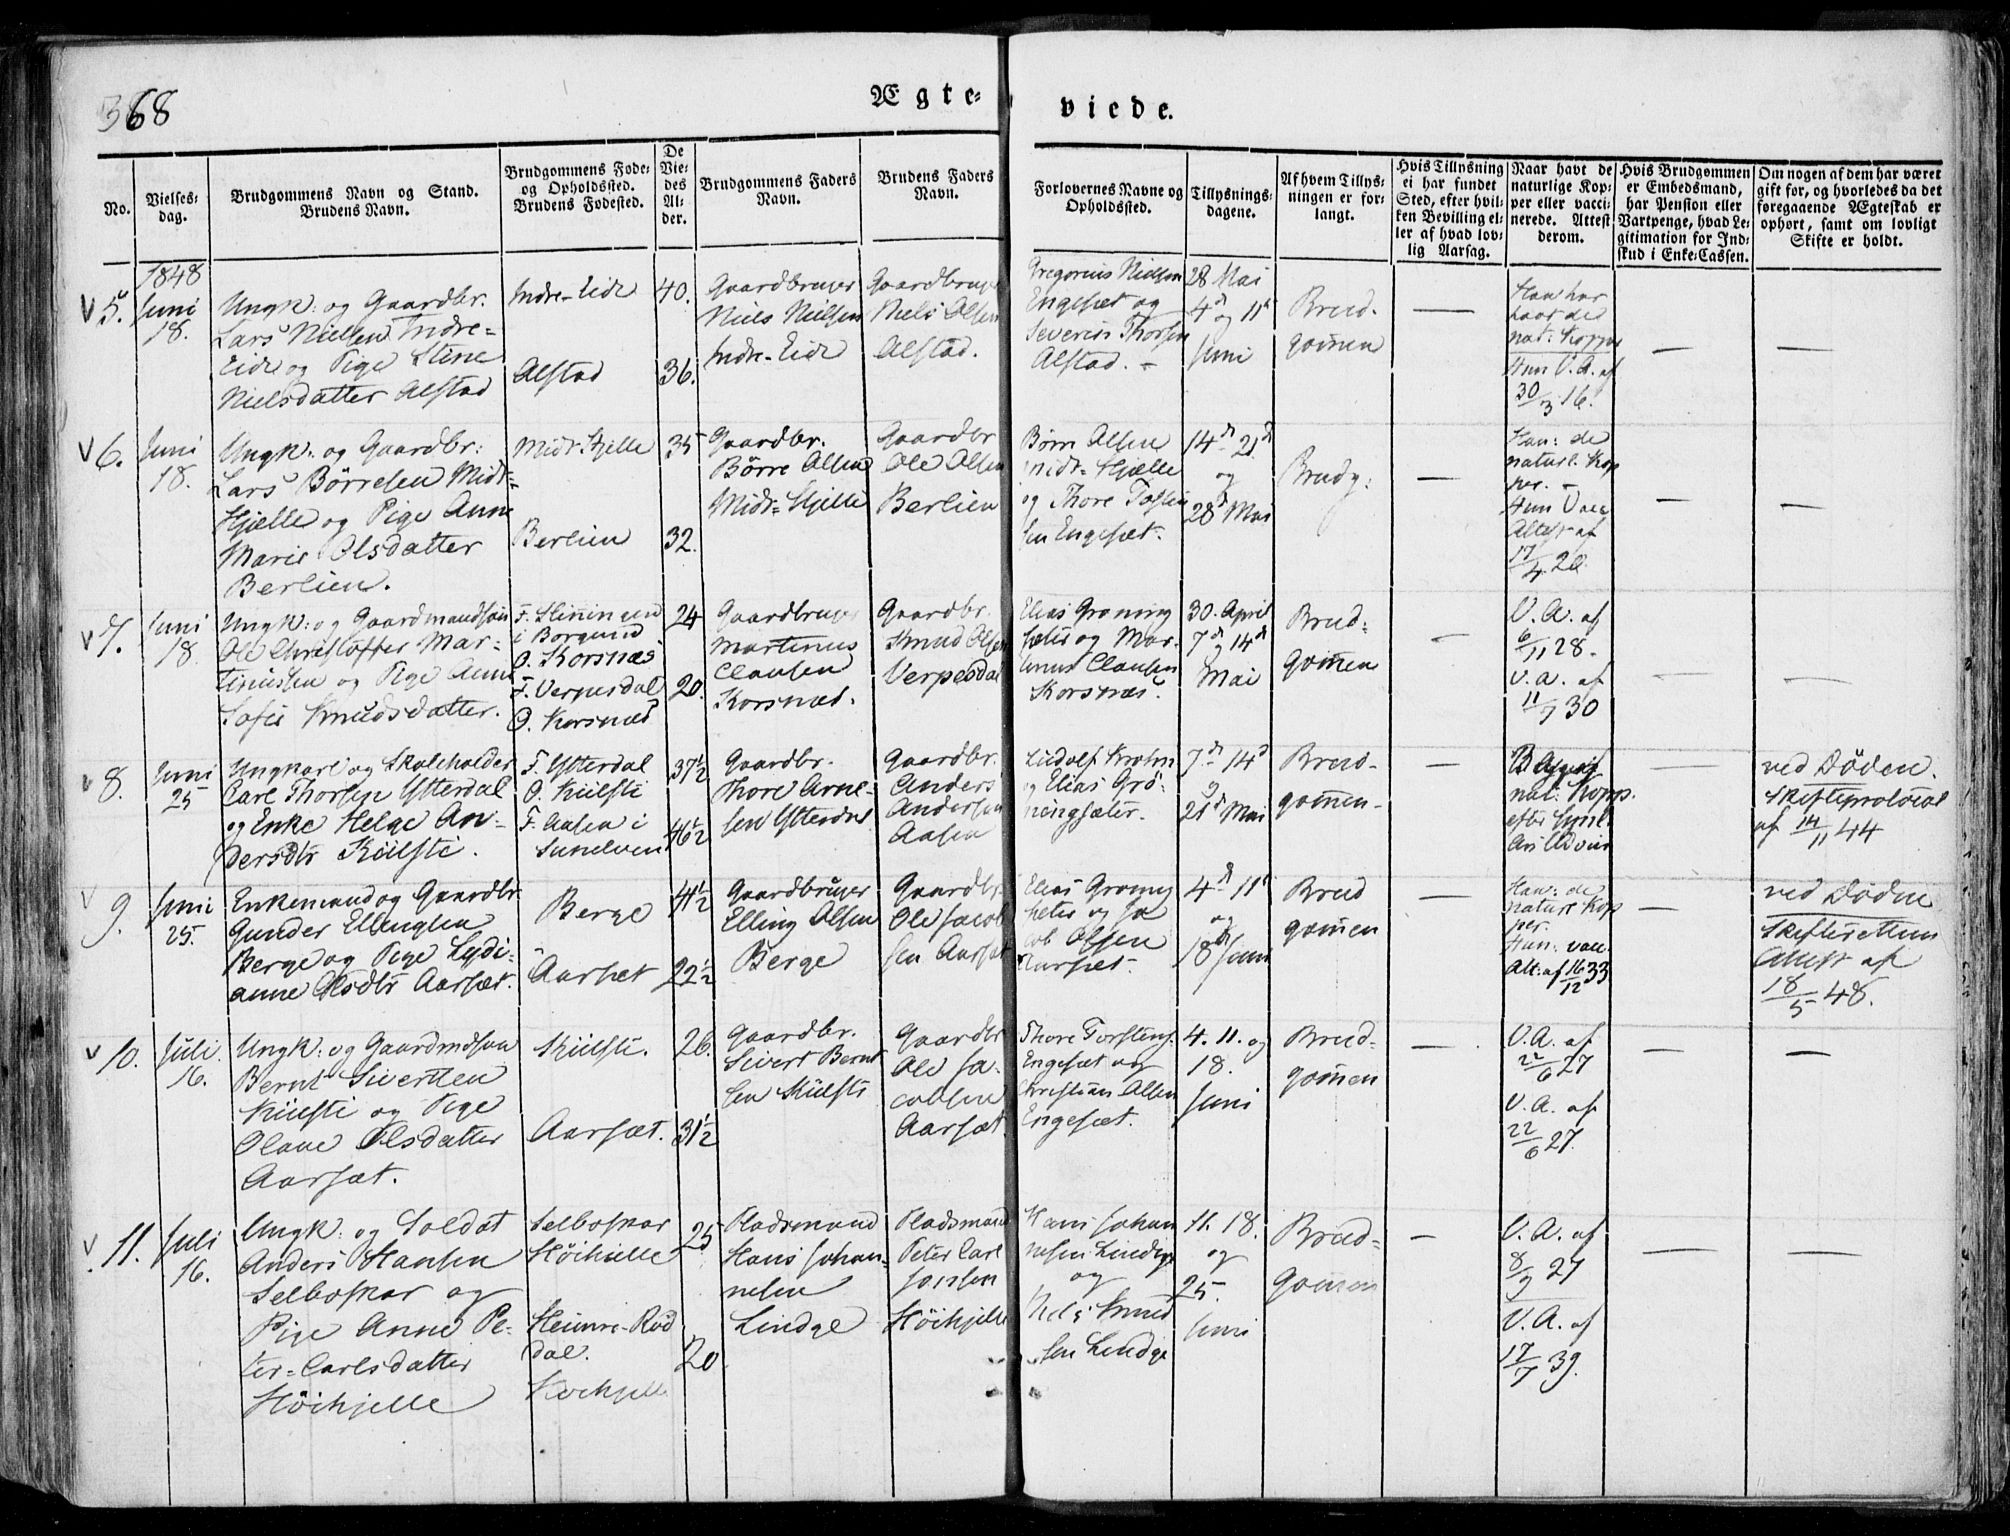 368
Ægte-
viede.
No.
Vielses-
dag.
Brudgommens Navn og Stand.
Brudens Navn.
Brudgommens Føde-
og Opholdssted.
Brudens Fødested.
De
Vie-
des
Al-
der.
Brudgommens Faders
Navn.
Brudens Faders
Navn.
Forlovernes Navne og
Opholdssted.
Tillysnings-
dagene.
Af hvem Tillys-
ningen er for-
langt.
Hvis Tillysning
ei har fundet
Sted, efter hvil-
ken Bevilling el-
ler af hvad lov-
lig Aarsag.
Naar havt de
naturlige Kop-
per eller vacci-
nerede. Attest
derom.
Hvis Brudgommen
er Embedsmand,
har Pension eller
Vartpenge, hvad Le-
gitimation for Ind-
skud i Enke-Cassen.
Om nogen af dem har været
gift før, og hvorledes da det
foregaaende Ægteskab er
ophørt, samt om lovligt
Skifte er holdt.
1848
5.
Juni
18.
Ungk: og Gaardbr.
Lars Nielsen Indre-
Eide og Pige Stine
Nielsdatter Alstad
Indre-Eide
Alstad
40.
36.
Gaardbruger
Niels Nielsen
Indre-Eide
Gaardbruger
Niels Olsen
Alstad.
Gregorius Nielsen
Engesæt og
Severin Thorsen
Alstad. -
28 Mai
4d og 11t
Juni
Brud-
gommen
Han har
havt de
nat: Kopper
Hun V.A. af
30/3 16.
6.
Juni
18.
Ungk: og Gaardbr:
Lars Börresen Midt-
Hjelle og Pige Anne
Marie Olsdatter
Berlien.
Midt-Hjelle
Berlien
35
32.
Gaardbr.
Börre Olsen
Midt-Hjelle
Gaardbr
Ole Olsen
Berlien
Börre Olsen
Midt-Hjelle
og Thore Tosten
sen Engesæt.
14d 21d
og
28d Mai
Brudg:
Han: de
naturl: Kop
per. -
Hun Vacc
Attest af
17/4 20.
7.
Juni
18
Ungk: og Gaardmandssøn
Ole Christoffer Mar-
tinussen og Pige Anne
Sofie Knudsdatter.
F. Slinningen
i Borgund
O. Korsnæs
F. Verpesdal
O. Korsnæs
24
20.
Gaardbruger
Martinus
Clausen
Korsnæs.
Gaardbr.
Knud Olsen
Verpesdal
Elias Groning
sæter og Mar-
tinus Clausen
Korsnæs.
30. April
7d og 14d
Mai
Brud-
gommen
V.A. af
6/11 28.
V.A. af
11/7 30
8.
Juni
25
Ungkarl og Skoleholder
Carl Thorsen Ytterdal
og Enke Helge An-
dersdtr Külsti.
F. Ytterdal
O. Külsti
F. Aasen i
Sunelven
37½
46½
Gaardbr.
Thore Arne-
sen Ytterdal
Gaardbr.
Anders
Andersen
Aasen
Ludolf Krohn
og Elias Grö-
ningsæter.
7d 14d
og
21d Mai
Brud-
gommen-
nat: Kopp.
efter
ved Döden.
Skifteprotocol
af 14/11 44
9.
Juni
25.
Enkemand og Gaardbr
Gunder Ellingsen
Berge og Pige Lydi-
anne Olsdtr Aarsæt.
Berge
Aarsæt
41½
22½
Gaardbruger
Elling Olsen
Berge
Gaardbr
Ole Jacob
sen Aarsæt
Elias Groning
sæter og Ja
cob Olsen
Aarsæt.
4d 11t
og
18d Juni
Brud
gommen
Han: de
naturl Kop
per.
Hun: vacc.
Att: af 16/12 33
ved Döden
Skifterettens
Attest af
18/5 48.
10.
Juli
16.
Ungk: og Gaardmdsøn
Bernt Sivertsen
Külsti og Pige
Olave Olsdatter
Aarsæt.
Külsti.
Aarsæt.
26.
31½
Gaardbr.
Sivert Bernt
sen Külsti
Gaardbr
Ole Ja-
cobsen
Aarsæt.
Thore Torstens.
Engesæt og
Christian Olsen
Engesæt.
4. 11. og
18.
Juni
Brud-
gommen
V.A. af
22/6 27
V.A. af
22/6 27.
11.
Juli
16.
Ungk: og Soldat
Anders Hansen
Selboskar og
Pige Anne Pe-
ter-Carlsdatter
Höihjelle
Selboskar
Höihjelle
Heimre-Rød
dal.
Höihjelle
25
20
Pladsmand
Hans Johan-
nesen
Lindge
Pladsmand
Peter Carl
Jonsen
Höihjelle
Hans Johan
nesen Lindge
og
Niels Knud
sen Lindge
11. 18.
og
25.
Juni
Brud-
gommen
V.A. af
8/9 27
V.A. af
17/7 39.